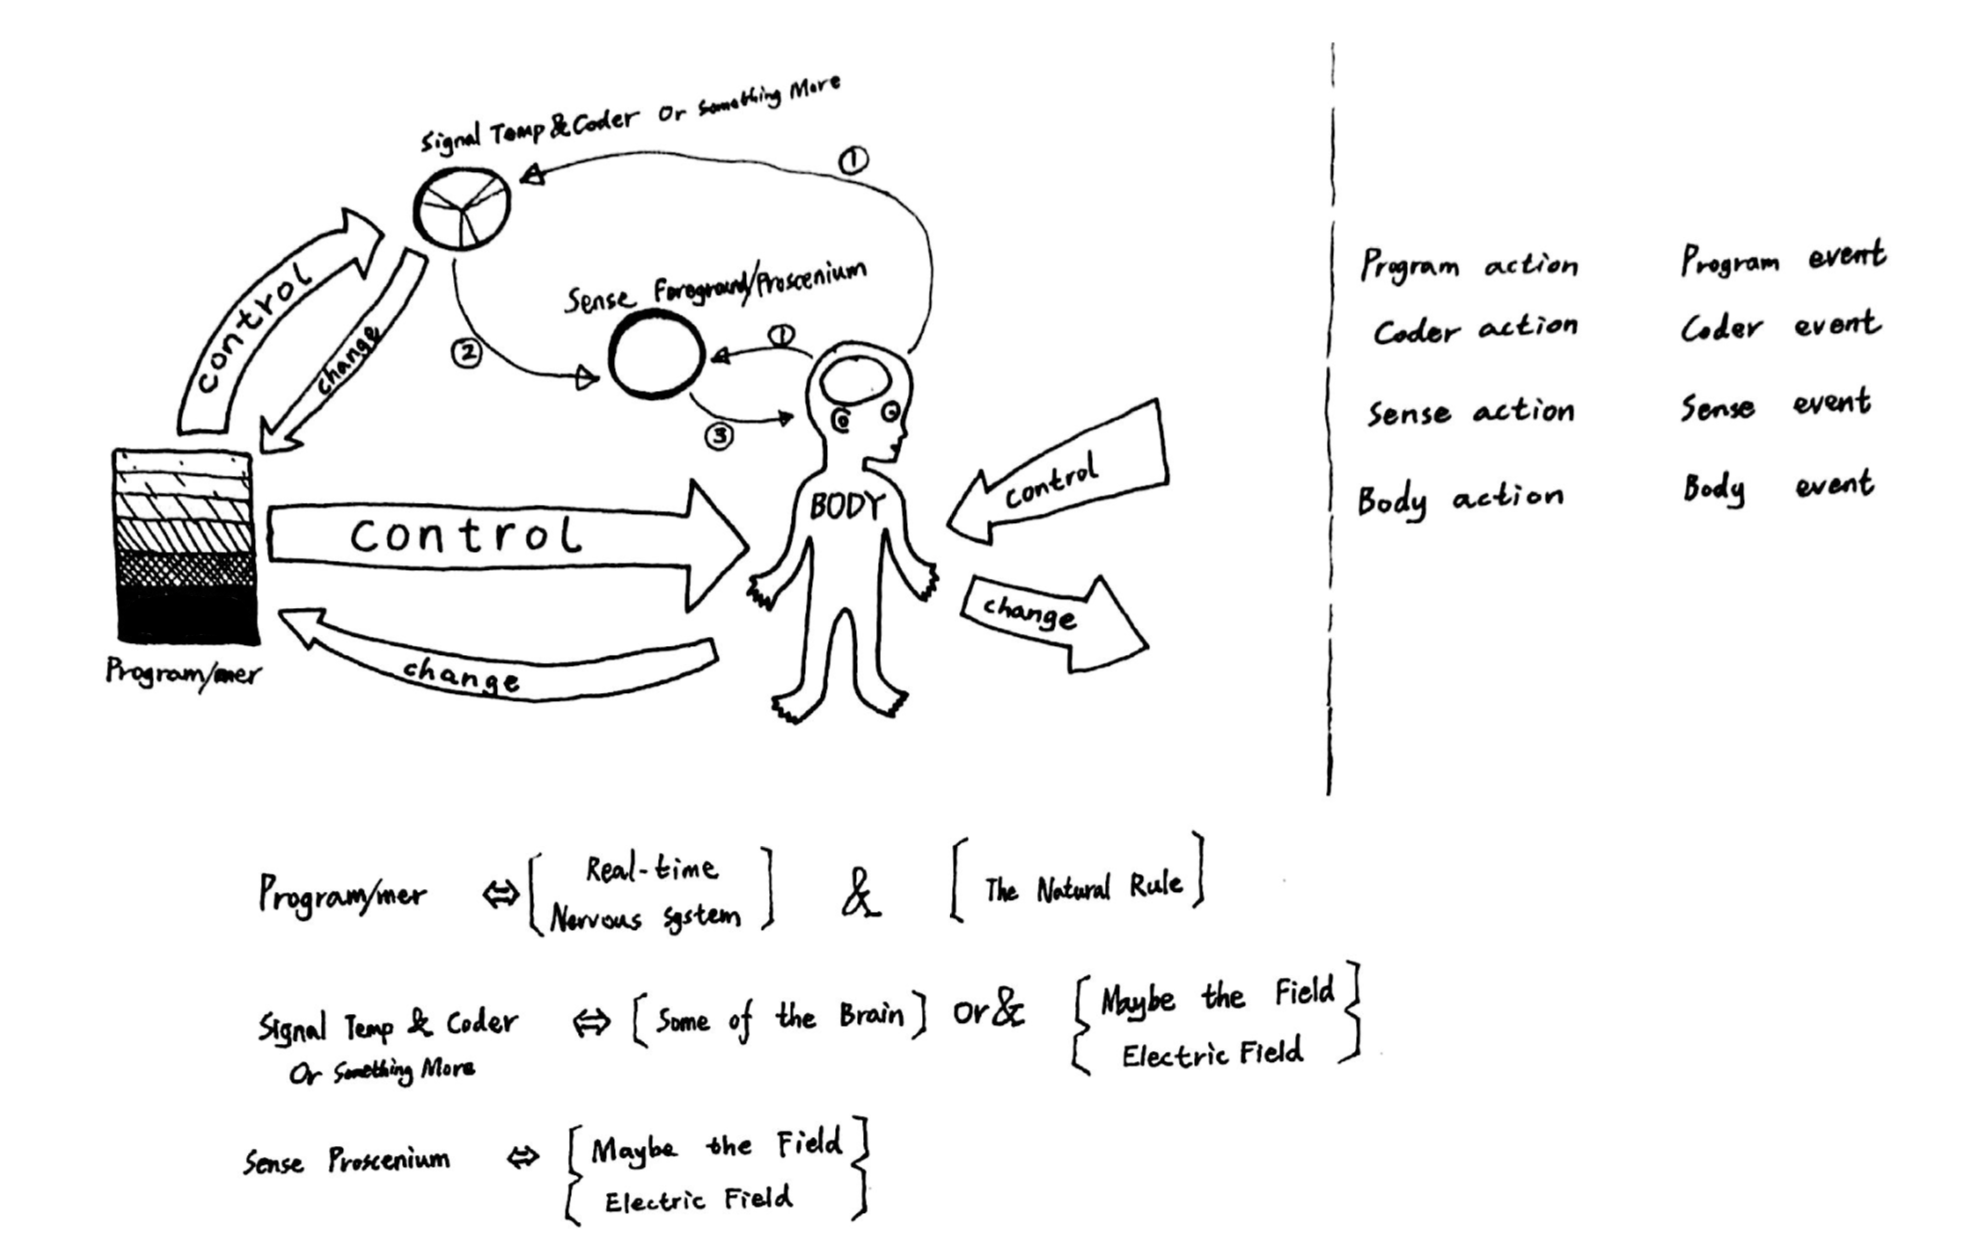 Signal Temp & Coder Or Something More
①
control
change
②
Sense Foreground/Proscenium
①
③
BODY
control
control
change
change
Program/mer
Program action Program event
Coder action Coder event
Sense action Sense event
Body action Body event
Program/mer ⇔ [ Real-time
Nervous System ] & [ The Natural Rule ]
Signal Temp & Coder ⇔ [ Some of the Brain ] Or & { Maybe the Field
Or Something More Electric Field }
Sense Proscenium ⇔ { Maybe the Field
Electric Field }